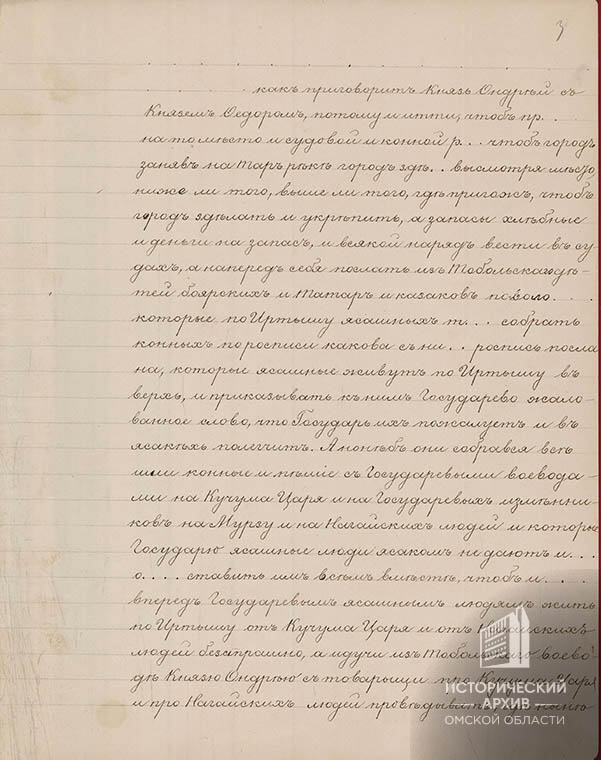 3
какъ приговоритъ Князь Ондрѣй съ
Княземъ Ѳедоромъ, потому и итти, чтобъ пр..
на то мѣсто и судовой и конной р... чтобъ городъ
занявъ на Тарѣ рѣкѣ городъ здѣ.. высмотря мѣсто
ниже ли того, выше ли того, гдѣ пригожъ, чтобъ
городъ здѣлать и укрѣпить, а запасы хлѣбные
и деньги на запасъ, и всякой нарядъ вести въ су-
дахъ, а напередъ себя послать изъ Тобольска дѣ-
тей боярскихъ и Татаръ и казаковъ по....
которые по Иртышу ясашныхъ т... собрать
конныхъ по росписи какова съ ни.. роспись посла
на, которые ясашные живутъ по Иртышу въ
верхъ, и приказывать къ нимъ Государево жало-
ванное слово, что Государь ихъ пожалуетъ и въ
ясакѣхъ полегчитъ. А они бъ они собрався всѣ
шли конные и пѣшіе съ Государевыми воевода-
ми на Кучума Царя и на Государевыхъ измѣнни-
ковъ на Мурзу и на Нагайскихъ людей и которые
Государю ясашные люди ясакомъ не даютъ и....
о.... ставить имъ всѣмъ вмѣстѣ, чтобъ и....
впередъ Государевымъ ясашнымъ людямъ жить
по Иртышу отъ Кучума Царя и отъ Нагайскихъ
людей безстрашно, а идучи изъ Тобольского воево-
дѣ Князю Ондрѣю съ товарищи про Кучума Царя
и про Нагайскихъ людей провѣдывать
ИСТОРИЧЕСКИЙ
АРХИВ
ОМСКОЙ ОБЛАСТИ